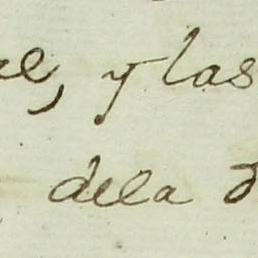 y las
dela